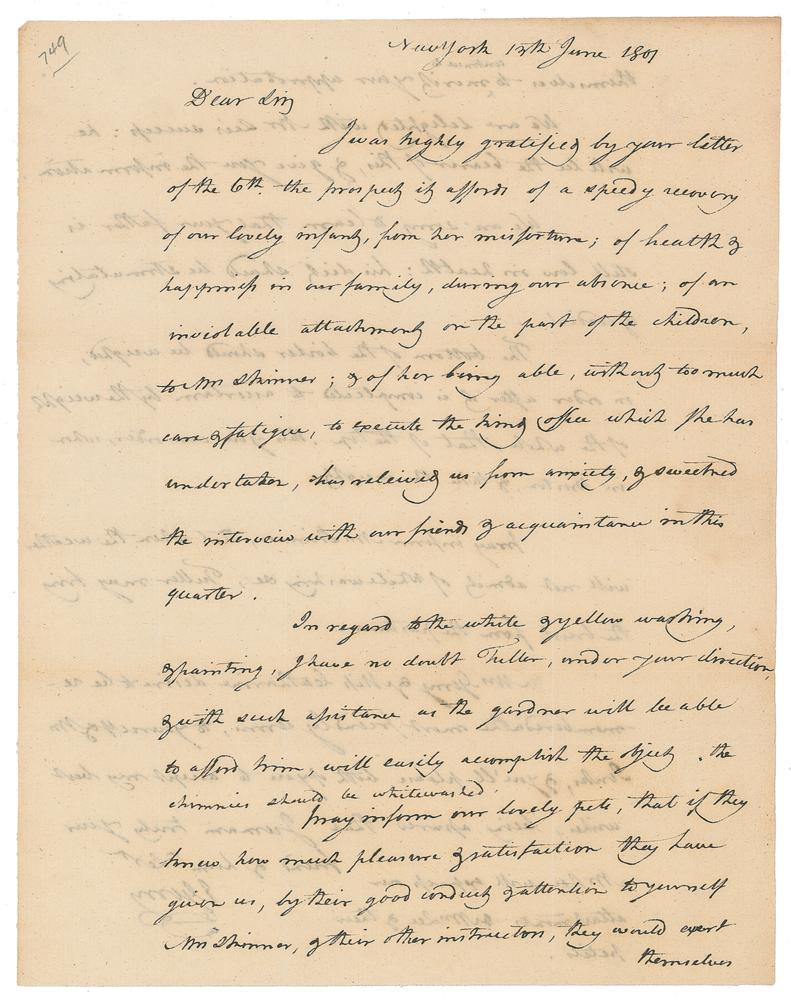 749
New York 13th June 1801
Dear Sir,
I was highly gratified by your letter
of the 6th. the prospect it affords of a speedy recovery
of our lovely infant, from her misfortune; of health &
happiness in our family, during our absence; of an
inviolable attachment on the part of the children,
to Mrs Skinner; & of her being able, without too much
care & fatigue, to execute the kind office which she has
undertaken, has relieved us from anxiety, & sweetned
the interview with our friends & acquaintance in this
quarter.
In regard to the white & yellow washing,
& painting, I have no doubt Fuller, under your direction,
& with such assistance as the gardner will be able
to afford him, will easily accomplish the object. the
chimnies should be whitewashed.
pray inform our lovely pets, that if they
knew how much pleasure & satisfaction they have
given us, by their good conduct & attention to yourself
Mrs Skinner, & their other instructors, they would exert
themselves